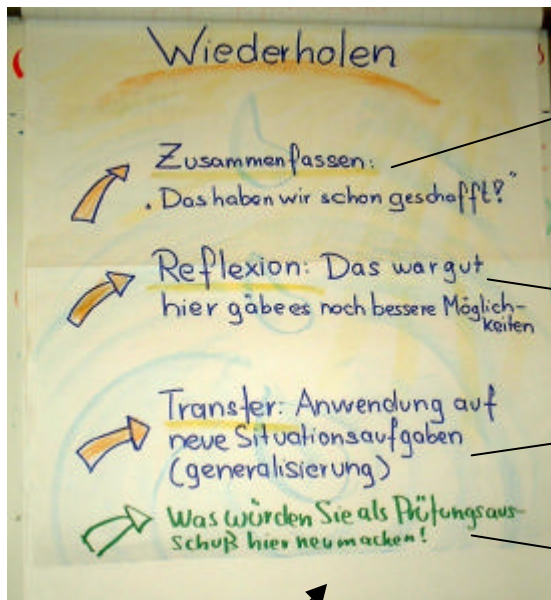 Wiederholen
Zusammenfassen:
„Das haben wir schon geschafft!"
Reflexion: Das war gut
hier gäbe es noch bessere Möglich-
keiten
Transfer: Anwendung auf
neue Situationsaufgaben
(generalisierung)
Was würden Sie als Prüfungsaus-
schuß hier neu machen!